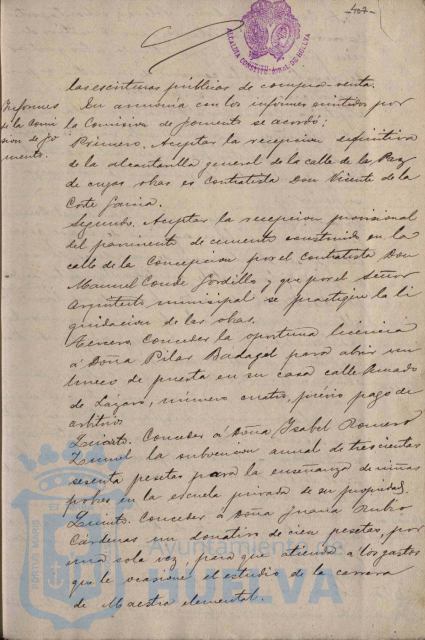 407
ALCALDIA CONSTITUCIONAL DE HUELVA
las escrituras públicas de compra-venta.
Informes de la Comision de Fomento.
En armonía con los informes emitidos por
la Comision de Fomento se acordó:
Primero. Aceptar la recepcion definitiva
de la alcantarilla general de la calle de la Paz
de cuyas obras es contratista Don Vicente de la
Corte Garcia.
Segundo. Aceptar la recepcion provisional
del pavimento de cemento construido en la
calle de la Concepcion por el contratista Don
Manuel Conde Gordillo y que por el Señor
Arquitecto municipal se practique la li
quidacion de las obras.
Tercero. Conceder la oportuna licencia
á Doña Pilar Badagol para abrir un
hueco de puerta en su casa calle Amado
de Lázaro, número cuatro, prévio pago de
arbitrio.
Cuarto. Conceder á Doña Isabel Romero
la subvencion anual de trescientas
sesenta pesetas para la enseñanza de niñas
pobres en la escuela privada de su propiedad.
Quinto. Conceder á Doña Juana Rubio
Cárdenas un donativo de cien pesetas, por
una sola vez, para que atienda a los gastos
que le ocasione el estudio de la carrera
de Maestra elemental.
Ayuntamiento de
HUELVA